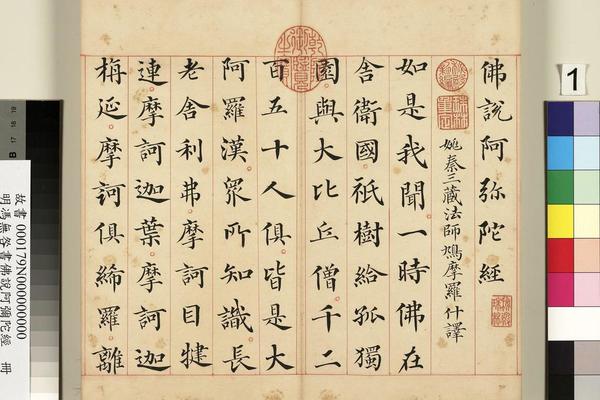 佛說阿弥陀經
姚秦三藏法師鳩摩羅什譯
如是我聞一時佛在
舍衛國祇樹給孤獨
園與大比丘僧千二
百五十人俱皆是大
阿羅漢眾所知識長
老舍利弗摩訶目犍
連摩訶迦葉摩訶迦
栴延摩訶俱絺羅離
乾隆御覽之寶
1
故書 000179N000000000
明馮無咎書佛說阿彌陀經 冊